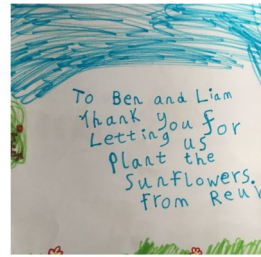 To Ben and Liam
Thank you for
Letting us
Plant the
Sunflowers.
from